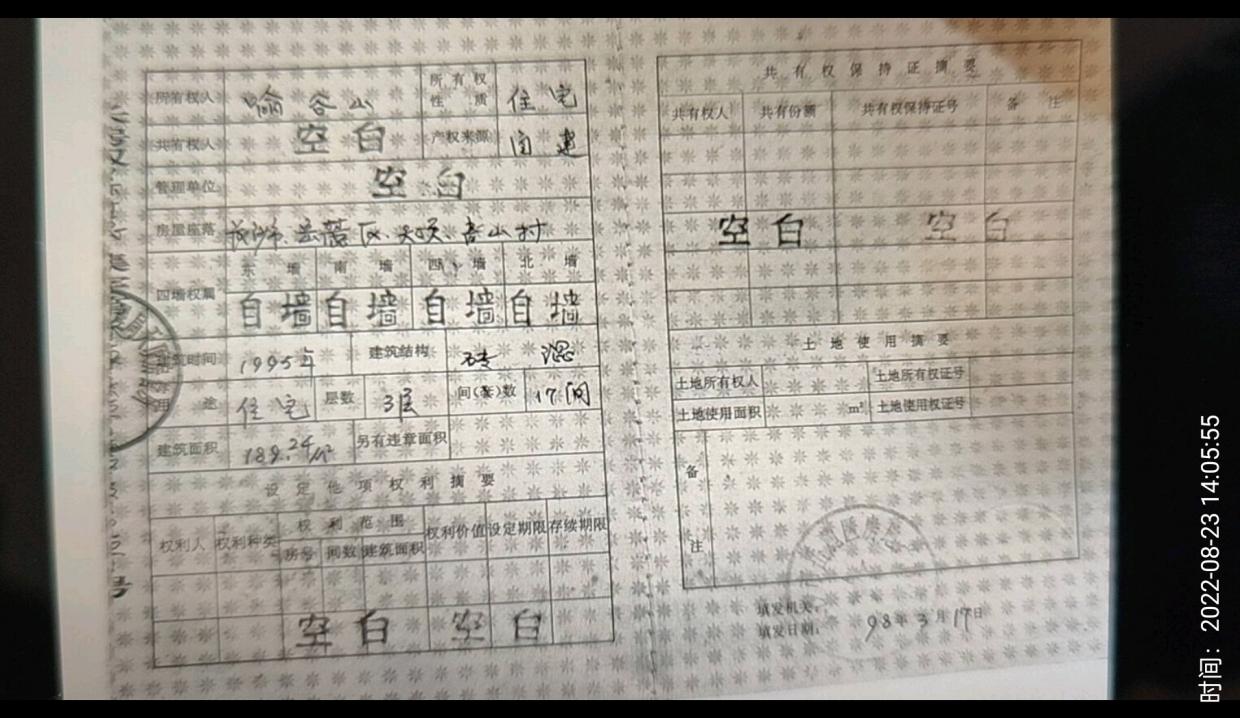 所有权人 喻谷山 所有权性质 住宅
共有权人 空白 产权来源 自建
管理单位 空白
房屋座落 区 谷山村
四墙权属 东墙 南墙 西墙 北墙
自墙 自墙 自墙 自墙
建筑时间 1995年 建筑结构 砖混
用途 住宅 层数 3层 间(套)数 17间
建筑面积 189.24m² 另有违章面积
设定他项权利摘要
权利人 权利种类 权利范围 权利价值 设定期限 存续期限
房号 间数 建筑面积
空白 空白
共有权保持证摘要
共有权人 共有份额 共有权保持证号 备注
空白 空白
土地使用摘要
土地所有权人 土地所有权证号
土地使用面积 m² 土地使用权证号
备注
填发机关:
填发日期: 98年3月17日
时间: 2022-08-23 14:05:55